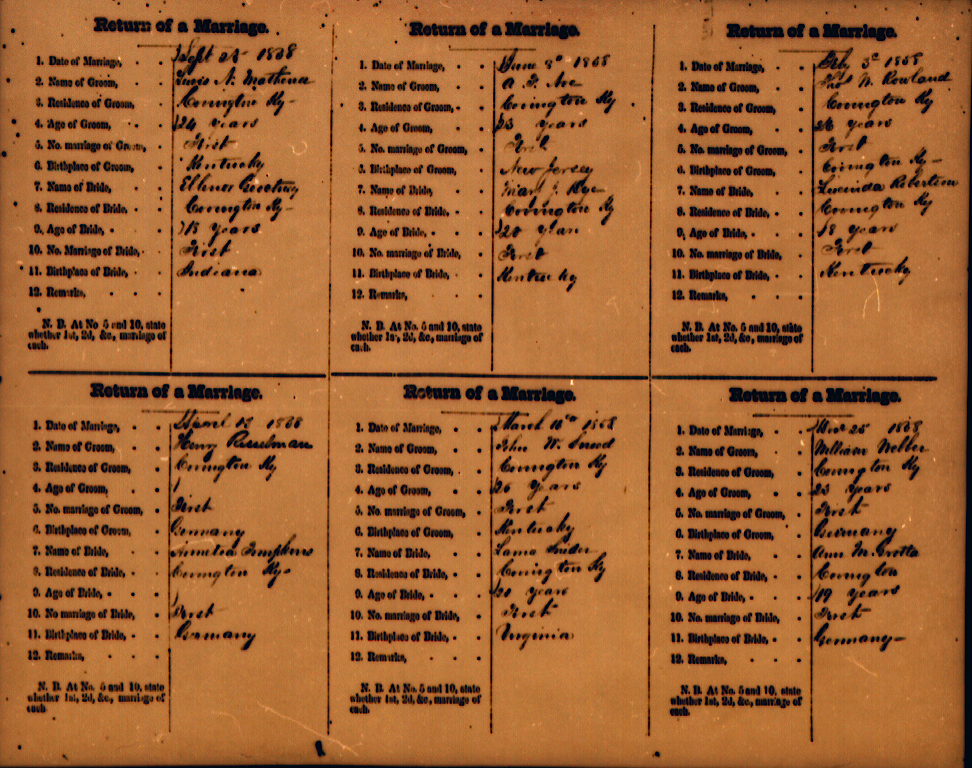 Return of a Marriage.
1. Date of Marriage, Sept 25 1858
2. Name of Groom, Lewis N.
3. Residence of Groom, Covington Ky
4. Age of Groom, 24 years
5. No. marriage of Groom, First
6. Birthplace of Groom, Kentucky
7. Name of Bride,
8. Residence of Bride, Covington Ky
9. Age of Bride, 18 years
10. No. Marriage of Bride, First
11. Birthplace of Bride, Indiana
12. Remarks,
N. B. At No 5 and 10, state
whether 1st, 2d, &c., marriage of
each.
Return of a Marriage.
1. Date of Marriage, June 8th 1858
2. Name of Groom,
3. Residence of Groom, Covington Ky
4. Age of Groom, 23 years
5. No. marriage of Groom, First
6. Birthplace of Groom, New Jersey
7. Name of Bride, Mary J.
8. Residence of Bride, Covington Ky
9. Age of Bride, 20 years
10. No. marriage of Bride, First
11. Birthplace of Bride, Kentucky
12. Remarks,
N. B. At No. 5 and 10, state
whether 1st, 2d, &c., marriage of
each.
Return of a Marriage.
1. Date of Marriage, Feby 3d 1858
2. Name of Groom, Rowland
3. Residence of Groom, Covington Ky
4. Age of Groom, years
5. No. marriage of Groom, First
6. Birthplace of Groom, Covington Ky
7. Name of Bride, Lucinda Robertson
8. Residence of Bride, Covington Ky
9. Age of Bride, 18 years
10. No. marriage of Bride, First
11. Birthplace of Bride, Kentucky
12. Remarks,
N. B. At No. 5 and 10, state
whether 1st, 2d, &c., marriage of
each.
Return of a Marriage.
1. Date of Marriage, April 1858
2. Name of Groom, Henry
3. Residence of Groom, Covington Ky
4. Age of Groom,
5. No. marriage of Groom, First
6. Birthplace of Groom, Germany
7. Name of Bride,
8. Residence of Bride, Covington Ky
9. Age of Bride,
10. No marriage of Bride, First
11. Birthplace of Bride, Germany
12. Remarks,
N. B. At No. 5 and 10, state
whether 1st, 2d, &c., marriage of
each
Return of a Marriage.
1. Date of Marriage, March 1858
2. Name of Groom, John W.
3. Residence of Groom, Covington Ky
4. Age of Groom, 26 years
5. No. marriage of Groom, First
6. Birthplace of Groom, Kentucky
7. Name of Bride,
8. Residence of Bride, Covington Ky
9. Age of Bride, years
10. No. marriage of Bride, First
11. Birthplace of Bride, Virginia
12. Remarks,
N. B. At No. 5 and 10, state
whether 1st, 2d, &c., marriage of
each.
Return of a Marriage.
1. Date of Marriage, 25 1858
2. Name of Groom, William
3. Residence of Groom, Covington Ky
4. Age of Groom, 23 years
5. No. marriage of Groom, First
6. Birthplace of Groom, Germany
7. Name of Bride, Ann M. Grotta
8. Residence of Bride, Covington
9. Age of Bride, 19 years
10. No. marriage of Bride, First
11. Birthplace of Bride, Germany
12. Remarks,
N. B. At No. 5 and 10, state
whether 1st, 2d, &c., marriage of
each.